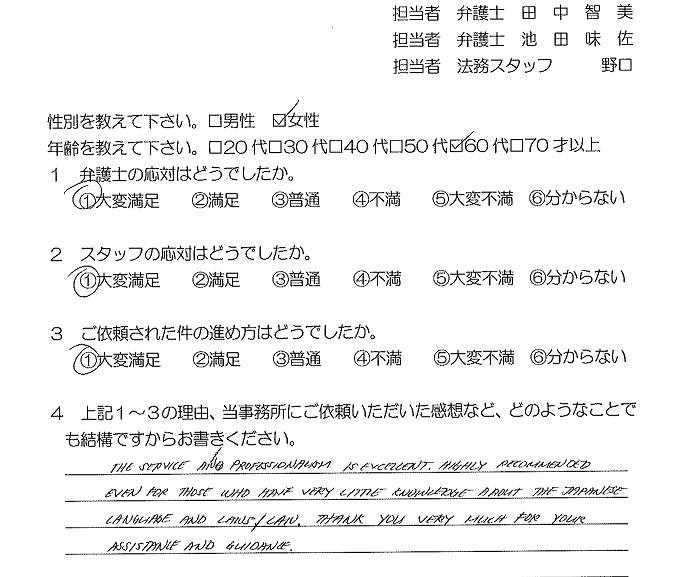 担当者 弁護士 田 中 智 美
担当者 弁護士 池 田 味 佐
担当者 法務スタッフ 野口
性別を教えて下さい。□男性 ☑女性
年齢を教えて下さい。□20代□30代□40代□50代☑60代□70才以上
1 弁護士の応対はどうでしたか。
①大変満足 ②満足 ③普通 ④不満 ⑤大変不満 ⑥分からない
2 スタッフの応対はどうでしたか。
①大変満足 ②満足 ③普通 ④不満 ⑤大変不満 ⑥分からない
3 ご依頼された件の進め方はどうでしたか。
①大変満足 ②満足 ③普通 ④不満 ⑤大変不満 ⑥分からない
4 上記1～3の理由、当事務所にご依頼いただいた感想など、どのようなことで
も結構ですからお書きください。
THE SERVICE AND PROFESSIONALISM IS EXCELLENT. HIGHLY RECOMMENDED
EVEN FOR THOSE WHO HAVE VERY LITTLE KNOWLEDGE ABOUT THE JAPANESE
LANGUAGE AND LAWS/LAW. THANK YOU VERY MUCH FOR YOUR
ASSISTANCE AND GUIDANCE.